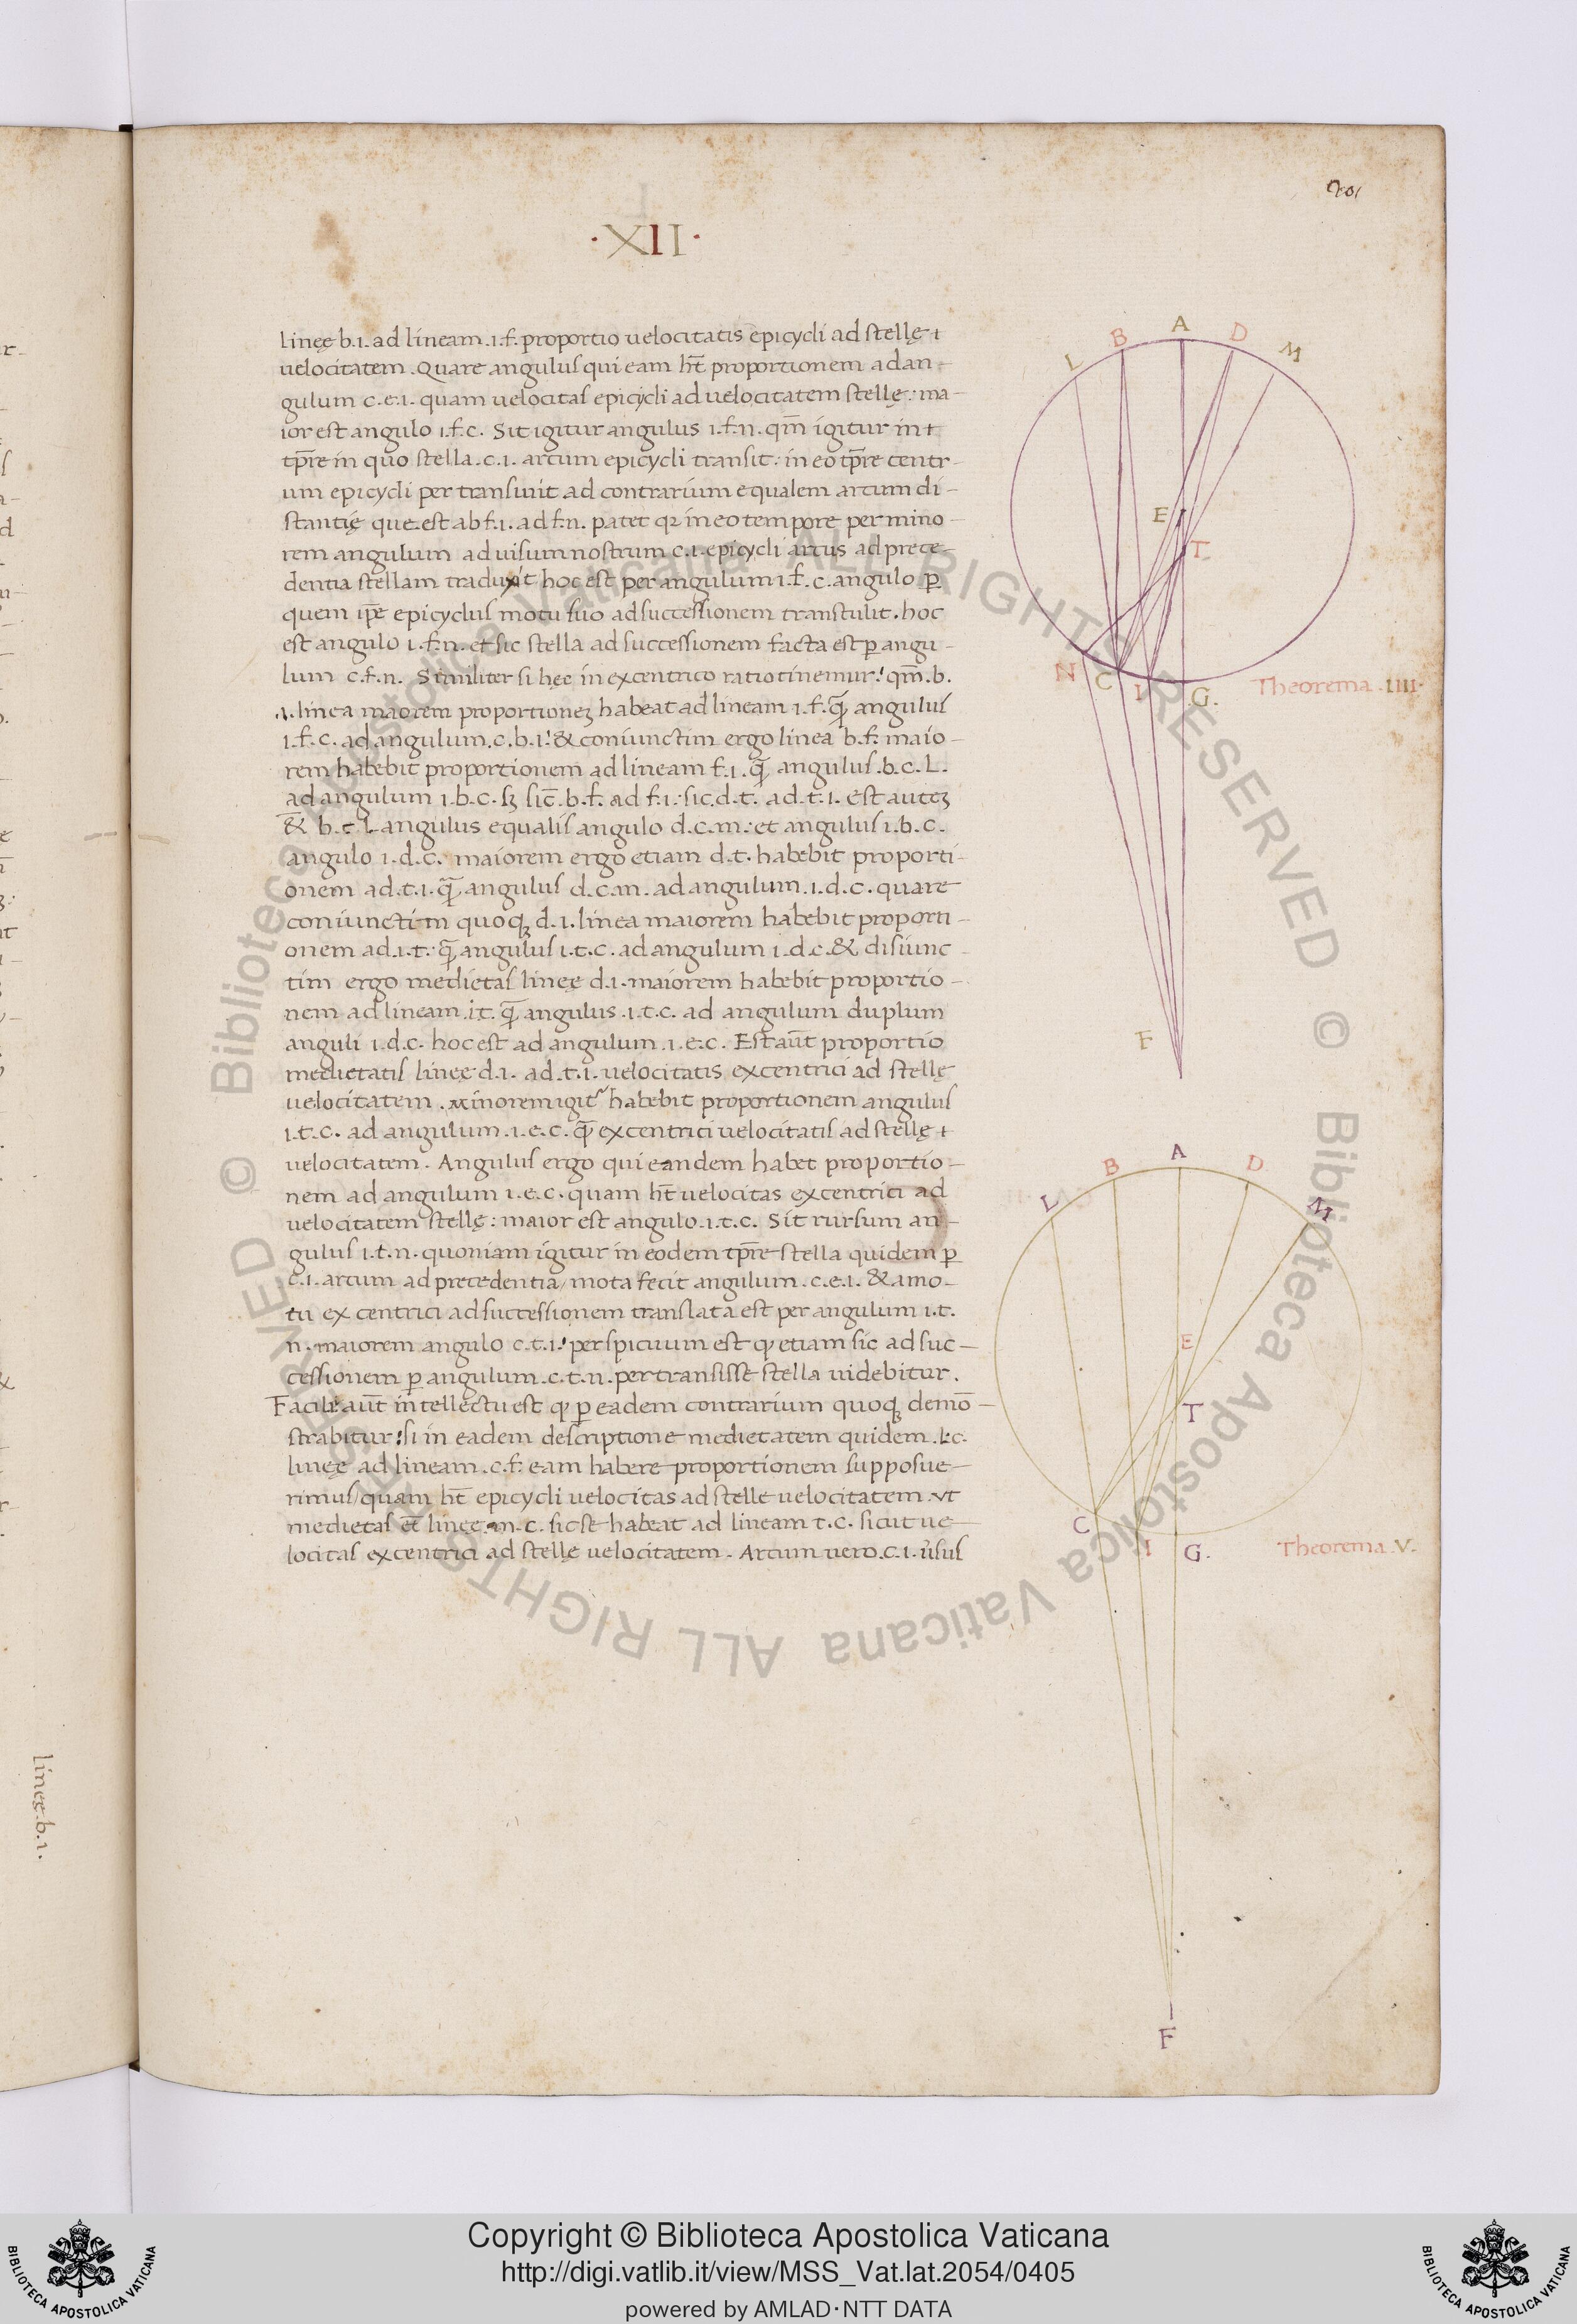 ·XII·
linęę b.i. ad lineam .i.f. proportio uelocitatis epicycli ad stellę
uelocitatem . Quare angulus qui eam hr̄t proportionem ad an-
gulum c.e.i. quam uelocitas epicycli ad uelocitatem stellę: ma-
ior est angulo i.f.c. Sit igitur angulus i.f.n. qm̄ igitur in
tp̄re in quo stella .c.i. arcum epicycli transit: in eo tp̄re centr-
um epicycli per transiuit ad contrarium equalem arcum di-
stantię que est ab f.i. ad f.n. patet qz in eo tempore per mino-
rem angulum ad uisum nostrum c.i. epicycli arcus ad prece-
dentia stellam traduxit hoc est per angulum i.f.c. angulo ꝑ
quem ip̄e epicyclus motu suo ad successionem transtulit. hoc
est angulo i.f.n. et sic stella ad successionem facta est ꝑ angu-
lum c.f.n. Similiter si hęc in excentrico ratiocinemur: qm̄ .b.
.i. linea maiorem proportionez habeat ad lineam i.f. qꝫ̄ angulus
i.f.c. ad angulum .c.b.i: & coniunctim ergo linea b.f. maio-
rem habebit proportionem ad lineam f.i. qꝫ̄ angulus .b.c.L.
ad angulum i.b.c. sꝫ sic̄ .b.f. ad f.i: sic .d.t. ad .t.i. est autez
& b.c.l. angulus equalis angulo d.c.m: et angulus i.b.c.
angulo i.d.c. maiorem ergo etiam d.t. habebit proporti-
onem ad .t.i. qꝫ̄ angulus d.c.m. ad angulum .i.d.c. quare
coniunctim quoqꝫ d.i. linea maiorem habebit proporti-
onem ad .i.t: qꝫ̄ angulus i.t.c. ad angulum i.d.c. & disiunc-
tim ergo medietas linęę d.i. maiorem habebit proportio-
nem ad lineam .i.t. qꝫ̄ angulus .i.t.c. ad angulum duplum
anguli i.d.c. hoc est ad angulum .i.e.c. Est aut̄ proportio
medietatis linęę d.i. ad .t.i. uelocitatis excentrici ad stellę
uelocitatem . Minorem igit᷑ habebit proportionem angulus
i.t.c. ad angulum .i.e.c. qꝫ̄ excentrici uelocitatis ad stellę
uelocitatem . Angulus ergo qui eandem habet proportio-
nem ad angulum i.e.c. quam hr̄t uelocitas excentrici ad
uelocitatem stellę: maior est angulo .i.t.c. Sit rursum an-
gulus i.t.n. quoniam igitur in eodem tp̄re stella quidem ꝑ
c.i. arcum ad precedentia / mota fecit angulum .c.e.i. & a mo-
tu excentrici ad successionem translata est per angulum i.t.
n. maiorem angulo c.t.i: perspicuum est qꝫ etiam sic ad suc-
cessionem ꝑ angulum .c.t.n. pertransisse stella uidebitur.
Facile aut̄ intellectu est qꝫ ꝑ eadem contrarium quoqꝫ demō-
strabitur: si in eadem descriptione medietatem quidem .l.c.
linęę ad lineam .c.f. eam habere proportionem supposue-
rimus / quam hr̄t epicycli uelocitas ad stelle uelocitatem . Vt
medietas et̄ linęę .m.c. sic se habeat ad lineam t.c. sicut ue-
locitas excentrici ad stellę uelocitatem . Arcum uero .c.i.
L B A D M
E
T
N C I G.
Theorema .IIII.
F
L B A D M
E
T
C I G.
Theorema .V.
F
linęę.b.i.
© Biblioteca Apostolica Vaticana ALL RIGHTS RESERVED © Biblioteca Apostolica Vaticana ALL RIGHTS RESERVED
Copyright © Biblioteca Apostolica Vaticana
http://digi.vatlib.it/view/MSS_Vat.lat.2054/0405
powered by AMLAD·NTT DATA
BIBLIOTECA APOSTOLICA VATICANA
BIBLIOTECA APOSTOLICA VATICANA